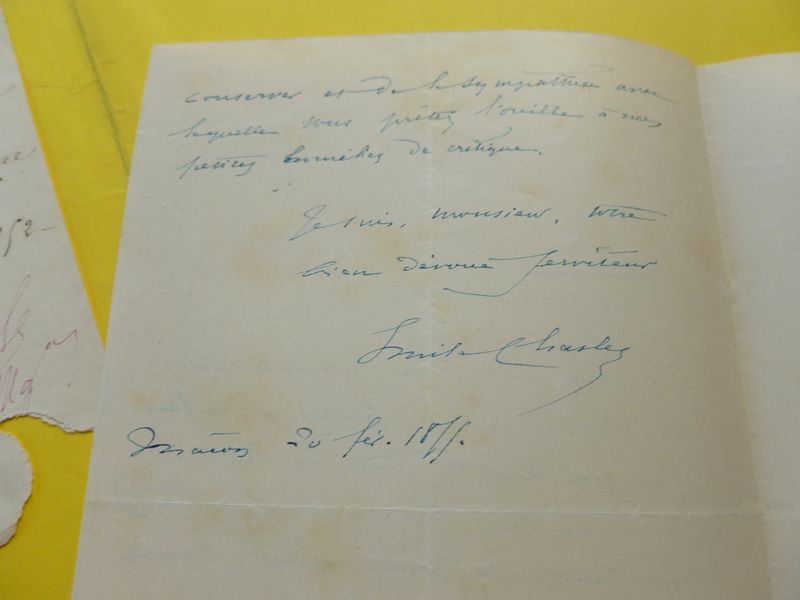 conserver et de la sympathie avec
laquelle vous prêtez l'oreille à nos
petites homélies de critique.
Je suis, monsieur, votre
bien dévoué serviteur
Emile Chasles
Macon 20 fév. 1855.
que
52-